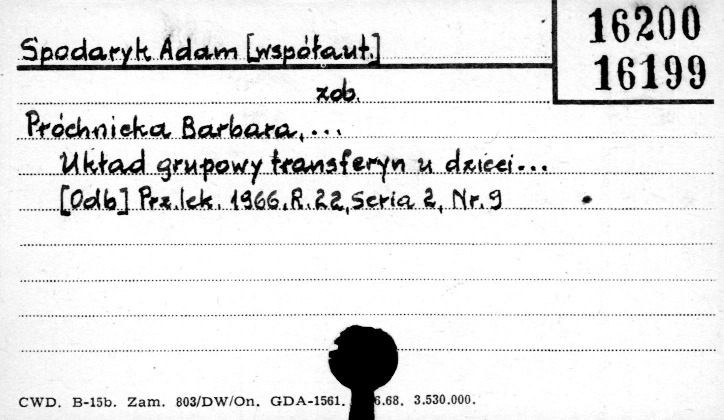 Spodaryk Adam [współaut.]
16200
16199
zob.
Próchnicka Barbara, ...
Układ grupowy transferyn u dzieci...
[Odb] Prz.lek. 1966.R.22, Seria 2, Nr. 9
CWD. B-15b. Zam. 803/DW/On. GDA-1561. 6.68. 3.530.000.